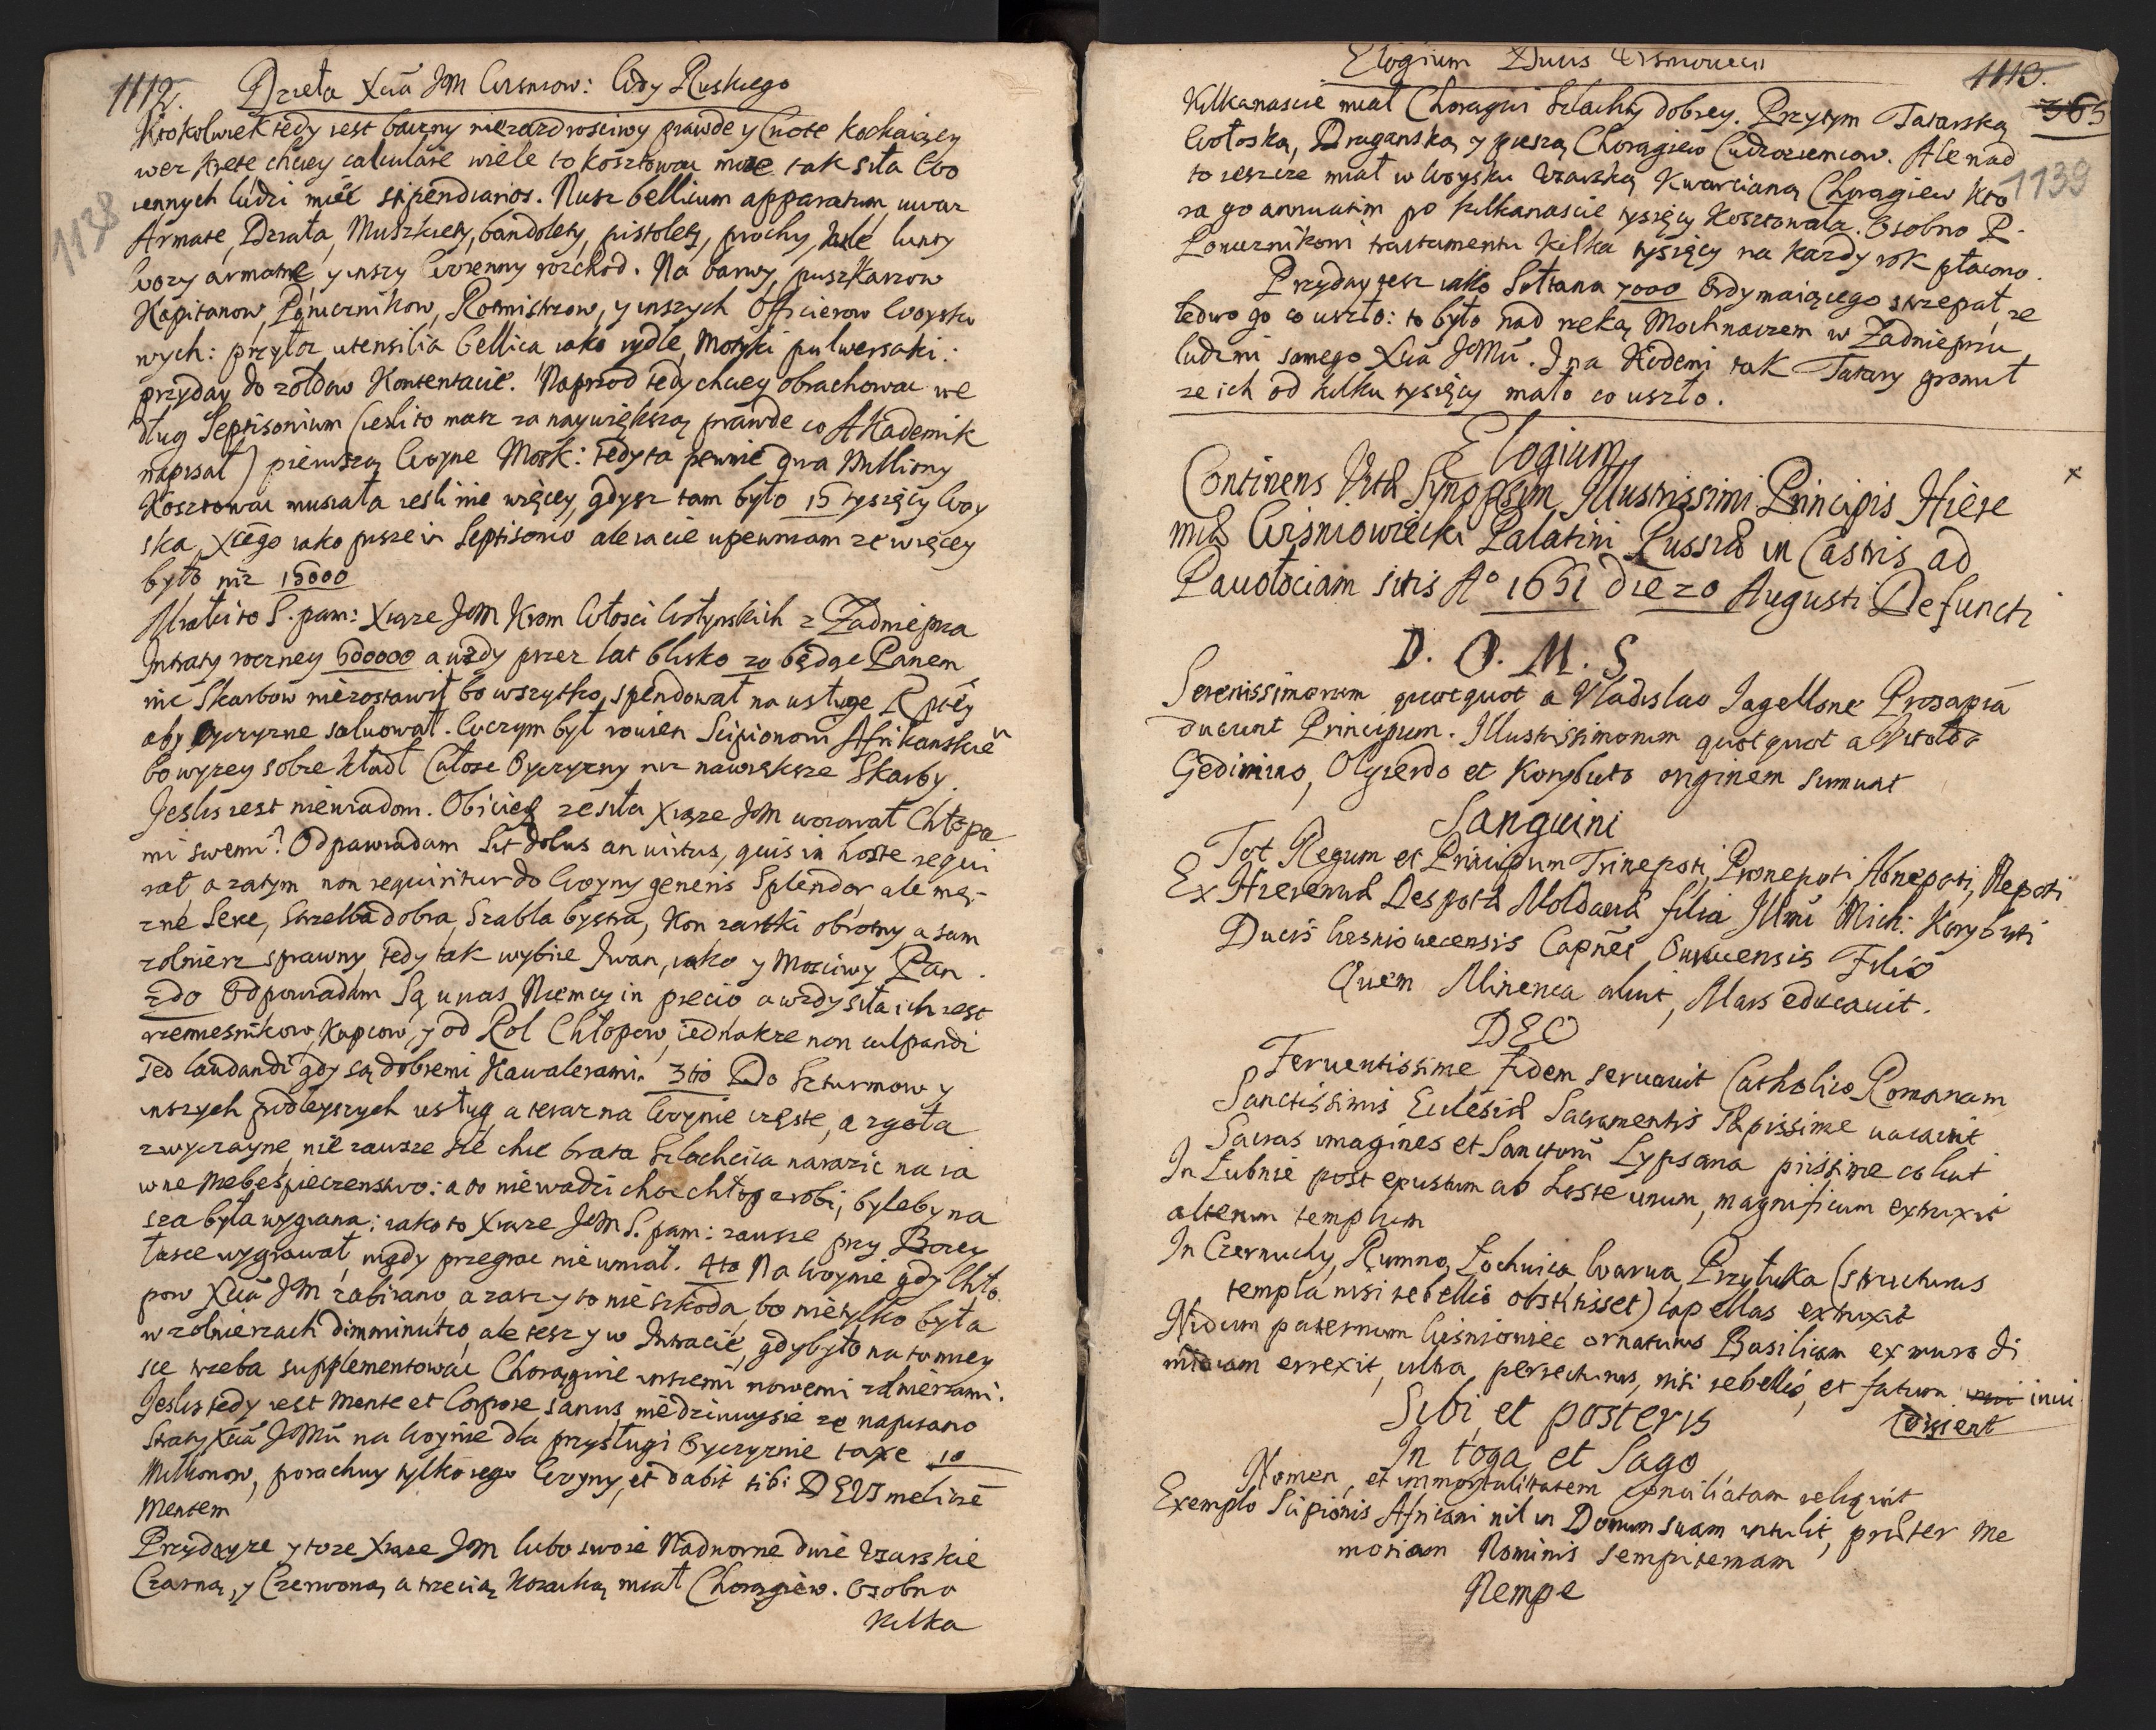 1112. Dzieła Xcia JM Wisniow: Wdy Ruskiego
1138
Ktokolwiek tedy iest baczny niezazdrosciwy prawde y Cnote kochaiący
wez Krete chciey calculare wiele to kosztowac może tak siła Wo
iennych ludzi mieć stipendiarios. Nusz bellicum apparatum uwaz
Armate, Działa, Muszkiety, bandolety, pistolety, prochy, kule lunty
Wozy armatne, y inszy Woienny rozchod. Na barwy, puszkarzow
Kapitanow, Porucznikow, Rotmistrzow, y inszych Officierow Woysko
wych: przytoz utensilia bellica iako rydle, Motyki pulwersaki:
przyday do zołdow Kontentacie. Naprzod tedy chciey obrachowac we
dług Septisonium (iesli to masz za naywiększą prawde co Akademik
napisał) pierwszą Woyne Mosk: tedy ta pewnie dwa Milliony
Kosztowac musiała iesli nie więcey, gdysz tam było 15 tysięcy Woy
ska Xcego iako pisze in Septisonio ale ia cie upewniam ze więcey
było niz 15000
Miał ito S. pam: Xiąze JeM krom Włosci Wołynskich z Zadniepra
Intraty roczney 600000 a wzdy przez lat blisko 20 będąc Panem
nic Skarbow niezostawił bo wszytko spendował na usługe Rptey
aby Oyczyzne salwował. W czym był rowien Scipionowi Afrikanskie
bo wyzey sobie kładł Całose Oyczyzny niz nawiększe Skarby.
Jeslis iest niewiadom. Obiicies ze siła Xiąze JeM woiował Chłopa
mi swemi? Odpawiadam Sit dolus an virtus, quis in hoste requi
rat, a zatym non requiritur do Woyny generis Splendor, ale mę-
zne Serce, Strzelba dobra, Szabla bystra, Kon rzaski obrotny, a sam
zołnierz sprawny, tedy tak wybiie Iwan, iako y Mosciwy Pan.
2do Odpowiadam Są u nas Niemcy in precio a wzdy siła ich iest
rzemiesnikow, Kupcow, y od Rol Chłopow, iednakze non culpandi
sed laudandi gdy są dobremi Kawalerami. 3tio Do Szturmow y
inszych podleyszych usług, a teraz na Woynie częste, a zgoła
zwyczayne, nie zawsze sie chce brata Szlachcica narazic na ia
wne Niebespieczenstwo: a to niewadzi choc chłop zrobi, byleby na
sza była wygrana: iako to Xiąze JeM S. pam: zawsze przy Bozey
łasce wygrawał, nigdy przegrac nie umiał. 4to Na Woynie gdy Chło
pow Xcia JM zabiiano, a zasz y to nie szkoda, bo nie tylko była
w zołnierzach dimminutio, ale tesz y w Intracie, gdy było na to miey
sce trzeba supplementowac Chorągwie inszemi nowemi zołnierzami.
Jeslis tedy iest Mente et Corpore sanus nie dziwuysie ze napisano
Straty Xcia JeMci na Woynie dla przysługi Oyczyznie taxe 10
Millionow, porachuy tylko tego Woyny, et dabit tibi DEUS meliore
Mentem
Przydayze y toze Xiąze JeM lubo swoie Nadworne dwie Usarskie
Czarną, y Czerwoną a trzecią Kozacką miał Chorągiew. Osobno
kilka
Elogium Ducis Wismoviecii
1113.
365
1139
Kilkanascie miał Chorągwi Szlachty dobrey. Przytym Tatarską
Wołoską, Draganską y pieszą Chorągiew Cudzoziemcow. Ale nad
to ieszcze miał w Woysku Usarską Kwarcianą Chorągiew kto
ra go annuatim po kilkanascie tysięcy kosztowała. Osobno P.
Porucznikowi tractamentu kilka tysięcy na kazdy rok płacono.
Przyday tesz iako Sołtana 7000 Ordy maiącego strzepał, ze
ledwo go co uszło: to było nad rzeką Mochnaczem w Zadnieprzu
ludzmi samego Xcia JeMci. I na Kodemi tak Tatary gromił
ze ich od kilku tysięcy mało co uszło.
Elogium
Continens Vitæ Synopsim Illustrissimi Principis Hiere
miæ Wiśniowiecki Palatini Russiæ in Castris ad
Pawołociam sitis Ao 1651 die 20 Augusti Defuncti
D. O. M. S
Serenissimorum quotquot a Vladislao Jagellone Prosapia
ducunt Principum. Illustrissimorum quotquot a Vitoldo
Gedimino, Olgierdo et Korybuto originem sumunt
Sanguini
Tot Regum et Principum Trinepoti, Pronepoti Abnepoti, Nepoti
Ex Hieremiæ Despotæ Moldaviæ filia Illmi Mich: Korybuti
Ducis Wisniowecensis Capnei Owrucensis Filio
Quem Minerva aluit, Mars educauit.
DEO
Feruentissime fidem seruauit Catholico Romanam
Sanctissimis Eclesiæ Sacramentis Sæpissime uacauit
Sacras imagines et Sanctorũ Lypsana piissime coluit
In Łubnie post exustum ab hoste unum, magnificum extruxit
alterum templum
In Czernuchy, Rumno, Łochwica, Warwa, Przyłuka (structurus
templa nisi rebellio obstitisset) capellas extruxit
Nidum paternum Wiśniowiec ornaturus Basilicam ex muro di
midiam errexit, ultra perrecturus, nisi rebellio, et fatum inui
dissent
Sibi et posteris
In toga et Sago
Nomen, et immortalitatem conciliatam reliquit
Exemplo Scipionis Africani nil in Domum suam intulit, præter Me
moriam Nominis sempiternam
Nempe